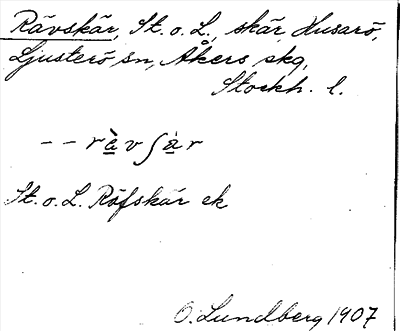 Rävskär, St. o. L., skär, Husarö,
Ljusterö sn, Åkers skg,
Stockh. l.
– – rä̀vʃä̀r
St. o. L. Räfskär ek
O. Lundberg 1907